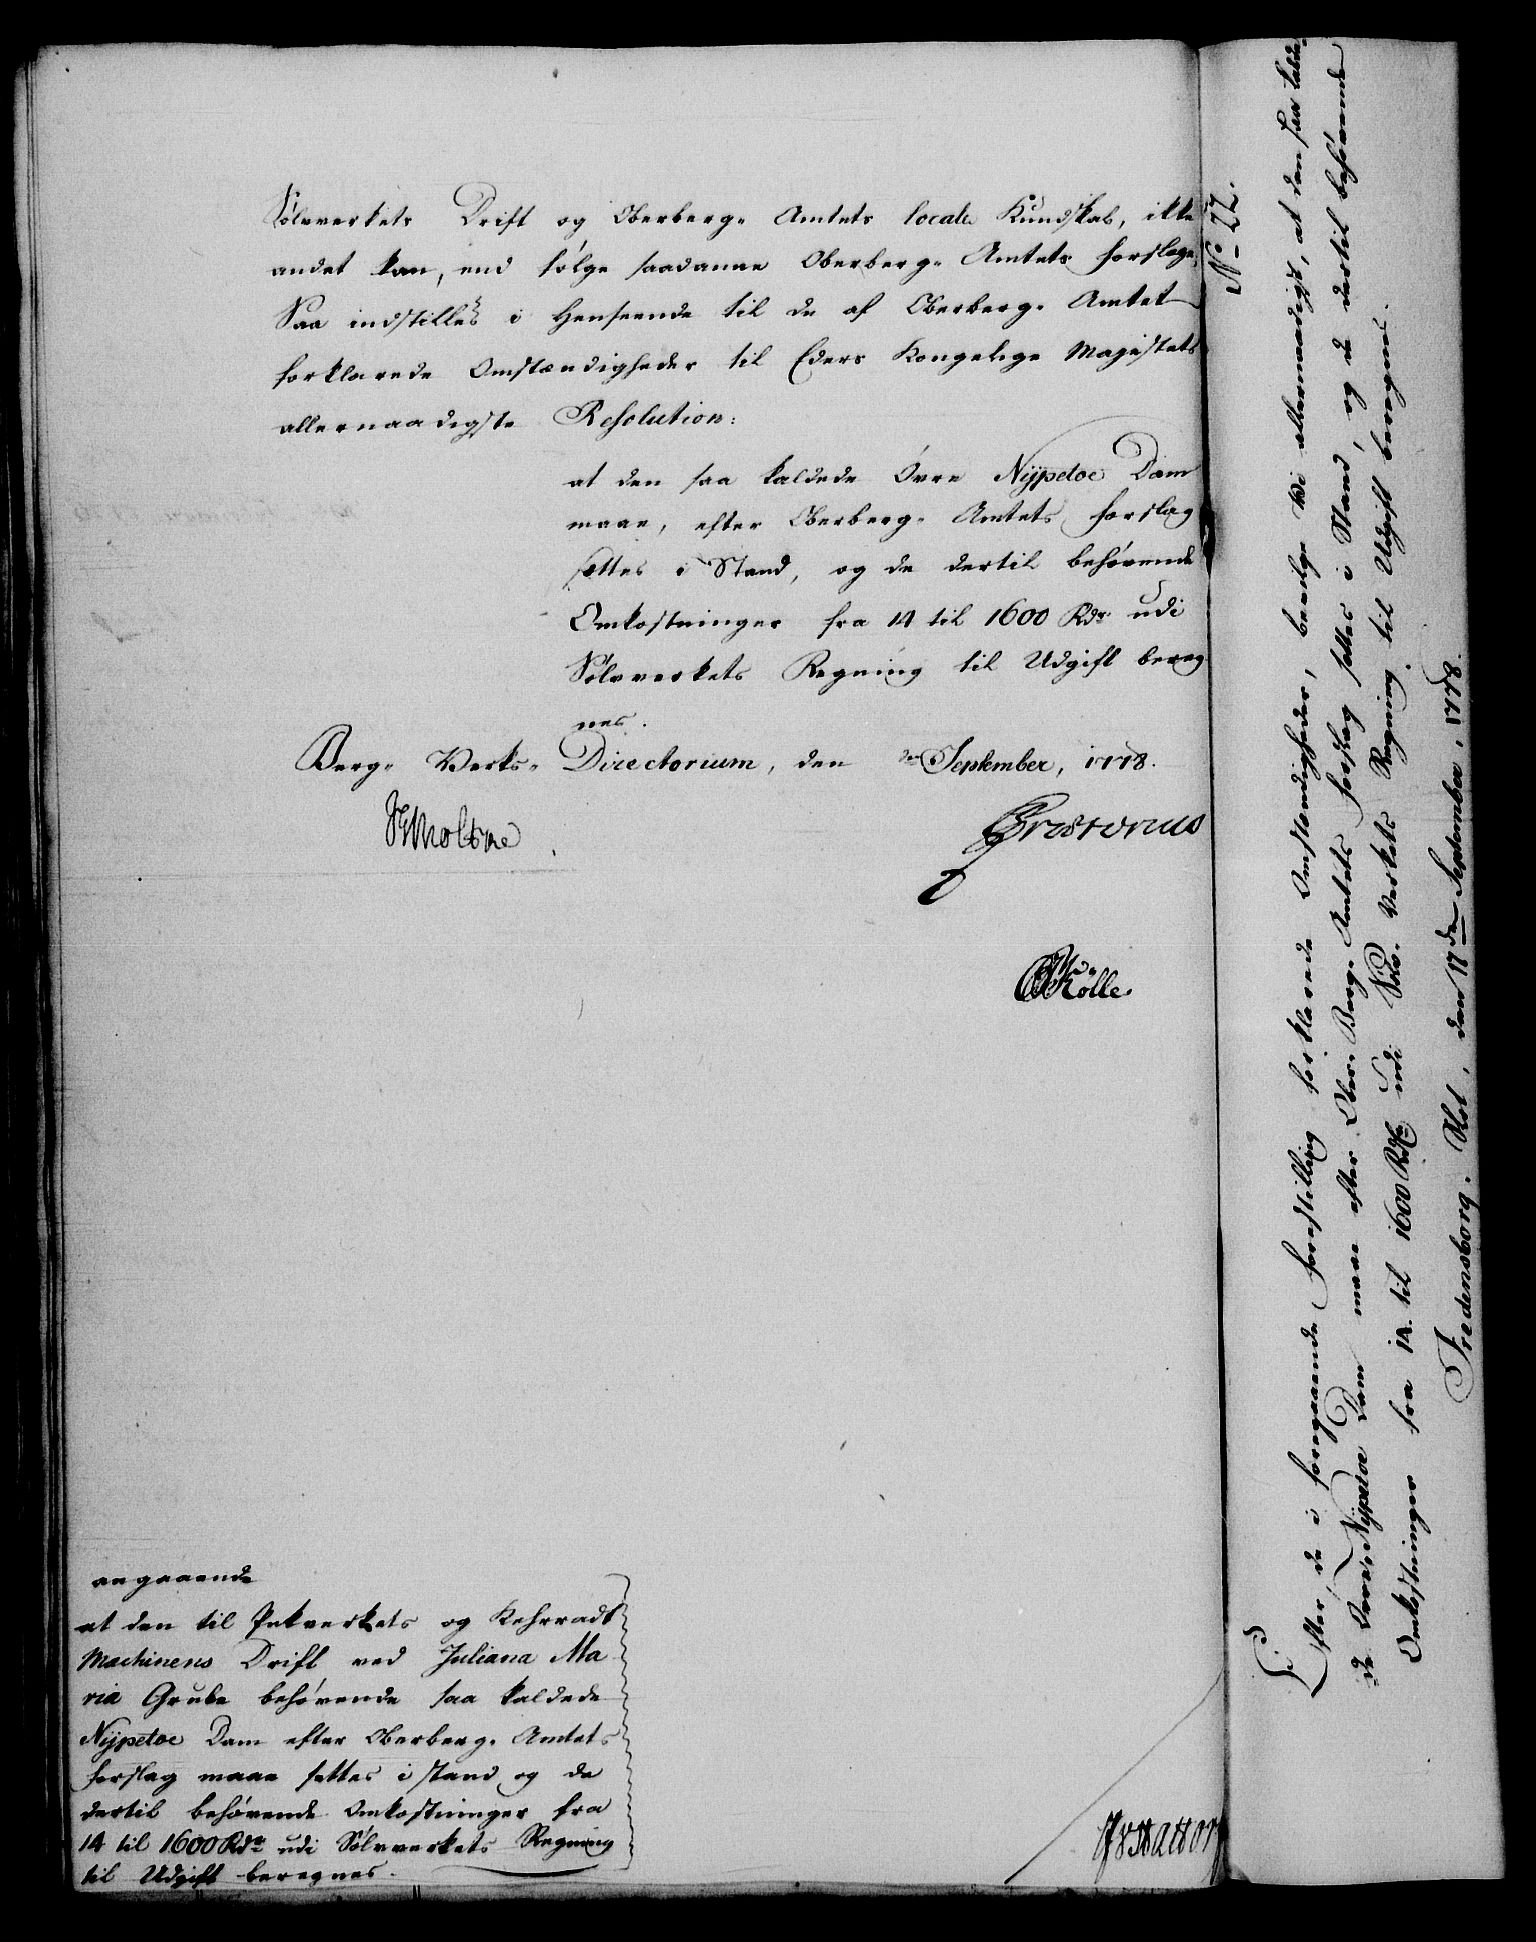 Sølvverkets Drift og Oberberg- Amtets locale Kundskab, ikke
andet kan, end følge saadanne Oberberg- Amtets Forslage,
Saa indstilles i Henseende til de af Oberberg- Amtet
forklarede Omstændigheder til Eders Kongelige Majestæts
allernaadigste Resolution:
at den saa kaldede Övre Nÿpetoe Dam
maae, efter Oberberg- Amtets Forslag
settes i Stand, og de dertil behøvende
Omkostninger fra 14 til 1600 Rdr udi
Sølvverkets Regning til Udgift bereg
nes.
Berg- Verks- Directorium, den September, 1778.
Prætorius
Kölle
angaaende
at den til Pukverkets og Kehrradt
Machinens Drift ved Juliana Ma
ria Grube behøvende saa kaldede
Nÿpetoe Dam efter Oberberg- Amtets
Forslag maae settes i stand og de
dertil behøvende Omkostninger fra
14 til 1600 Rdr udi Sølvverkets Regning
til Udgift beregnes.
No 22.
Efter de i foregaaende Forestilling forklarede Omstændigheder, bevilge Vi allernaadigst, at den saa kalde-
de Övre Nÿpetoe Dam maae efter Ober-Berg- Amtets Forslag settes i Stand, og de dertil behøvende
Omkostninger fra 14 til 1600 Rdr udi Sølv- Verkets Regning til Udgift beregnes.
Fredensborg- Slot, den 17de September, 1778.